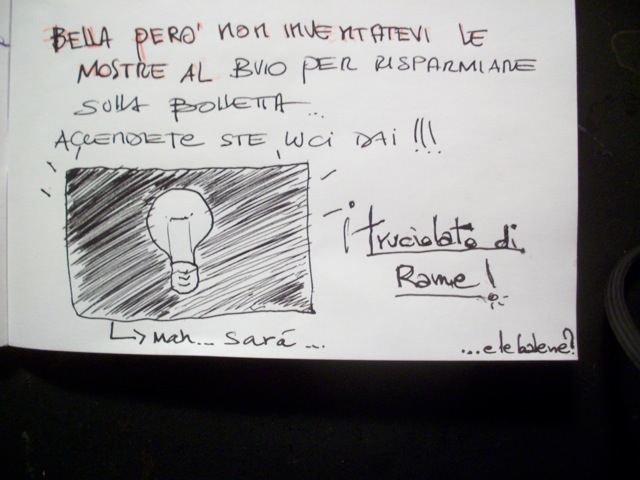 BELLA PERO' NON INVENTATEVI LE
MOSTRE AL BUIO PER RISPARMIARE
SULLA BOLLETTA...
ACCENDETE STE LUCI DAI!!!
¡truciolato di
Rame!
Mah... sará...
...e le balene?